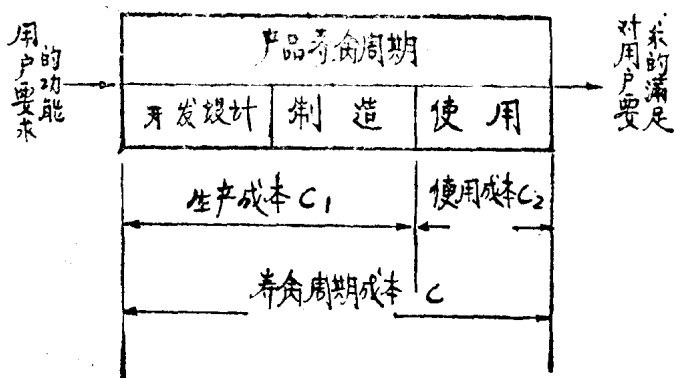 用户要求
的功能
产品寿命周期
开发设计
制造
使用
对用户要
求的满足
生产成本C1
使用成本C2
寿命周期成本 C